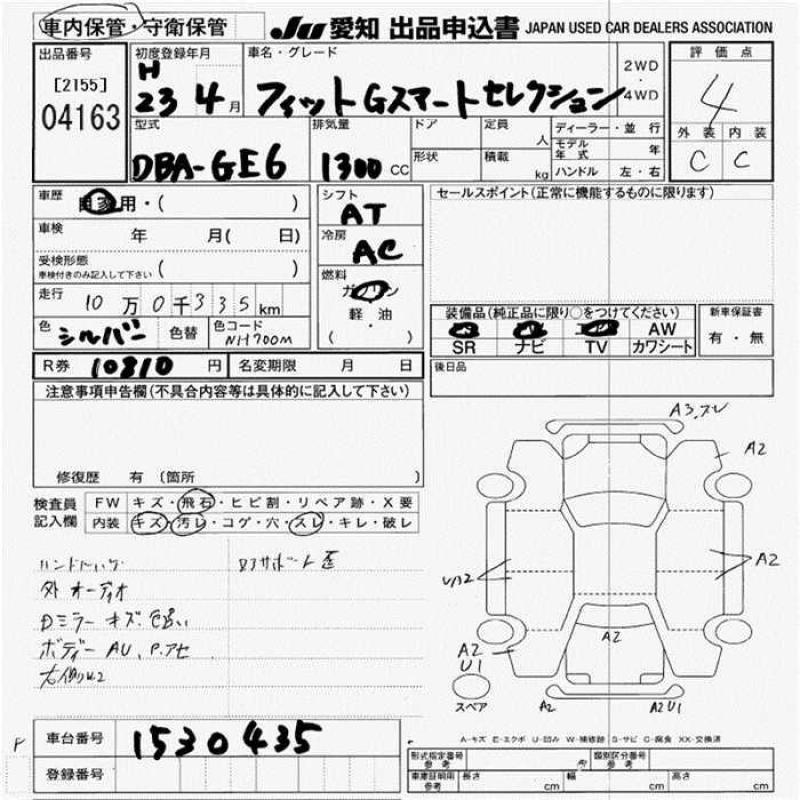 車内保管・守衛保管
JU 愛知 出品申込書 JAPAN USED CAR DEALERS ASSOCIATION
出品番号
[2155]
04163
初度登録年月
H
23 4月
車名・グレード
フィット Gスマートセレクション
2WD
4WD
評価点
4
外装 内装
C C
型式
DBA-GE6
排気量
1300 CC
ドア
形状
定員
人
積載
kg
ディーラー・並行
モデル年式 年
ハンドル 左・右
車歴
自家用・( )
車検
年 月( 日)
受検形態
車検付きのみ記入して下さい ( )
走行
10万0千335km
色
シルバー
色替
色コード
NH700M
シフト
AT
冷房
AC
燃料
ガソリン
軽油
( ・ )
セールスポイント(正常に機能するものに限ります)
装備品(純正品に限り○をつけてください)
AW
SR ナビ TV カワシート
新車保証書
有・無
R券 10810 円
名変期限 月 日
後日品
注意事項申告欄(不具合内容等は具体的に記入して下さい)
修復歴 有 (箇所 )
検査員記入欄
FW キズ・飛石・ヒビ割・リペア跡・X要
内装 キズ・汚レ・コゲ・穴・スレ・キレ・破レ
外 オーディオ
Dミラー キズ、色
ボディー AU、P.アセ
A3.スレ
A2
A2
A2
A2
U1
A2
A2 U1
スペア
A-キズ E-エクボ U-凹み W-補修跡 S-サビ C-腐食 XX-交換済
車台番号
1530435
登録番号
形式指定番号
参考
類別区分番号
参考
車庫証明用
参考
長さ cm
幅 cm
高さ cm